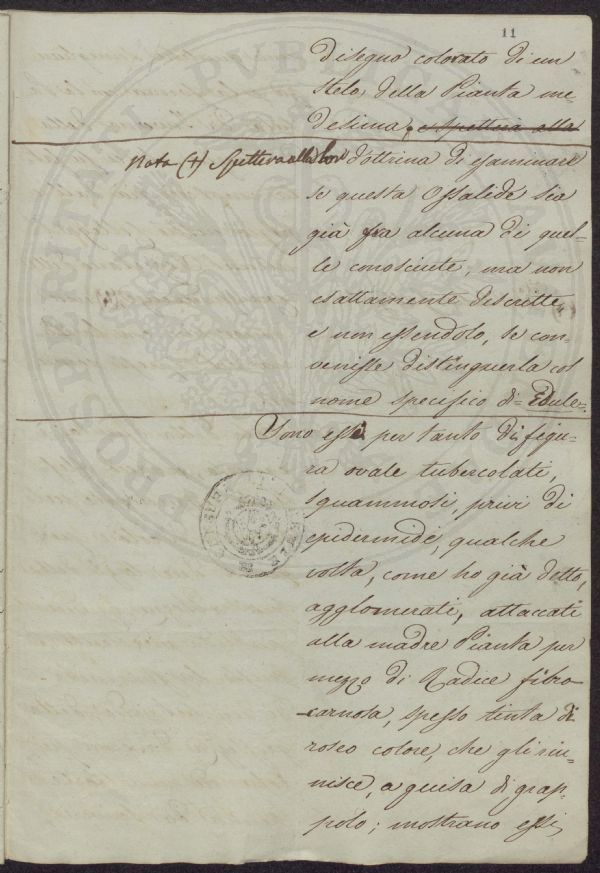 11
disegno colorato di un
stelo della Pianta me-
desima, e spetterà alla
Nota (+) Spetterà alla loro dottrina di esaminare
se questa Ossalide sia
già fra alcuna di quel-
le conosciute, ma non
esattamente descritte
e non essendolo, se con-
venisse distinguerla col
nome specifico di= Edule=
Sono essi per tanto di figu-
ra ovale tubercolati,
squammosi, privi di
epidermide, qualche
volta, come ho già detto,
agglomerati, attaccati
alla madre Pianta per
mezzo di Radice fibro
-carnosa, spesso tinta di
roseo colore, che gli riu-
nisce, a guisa di grap-
polo; mostrano essi